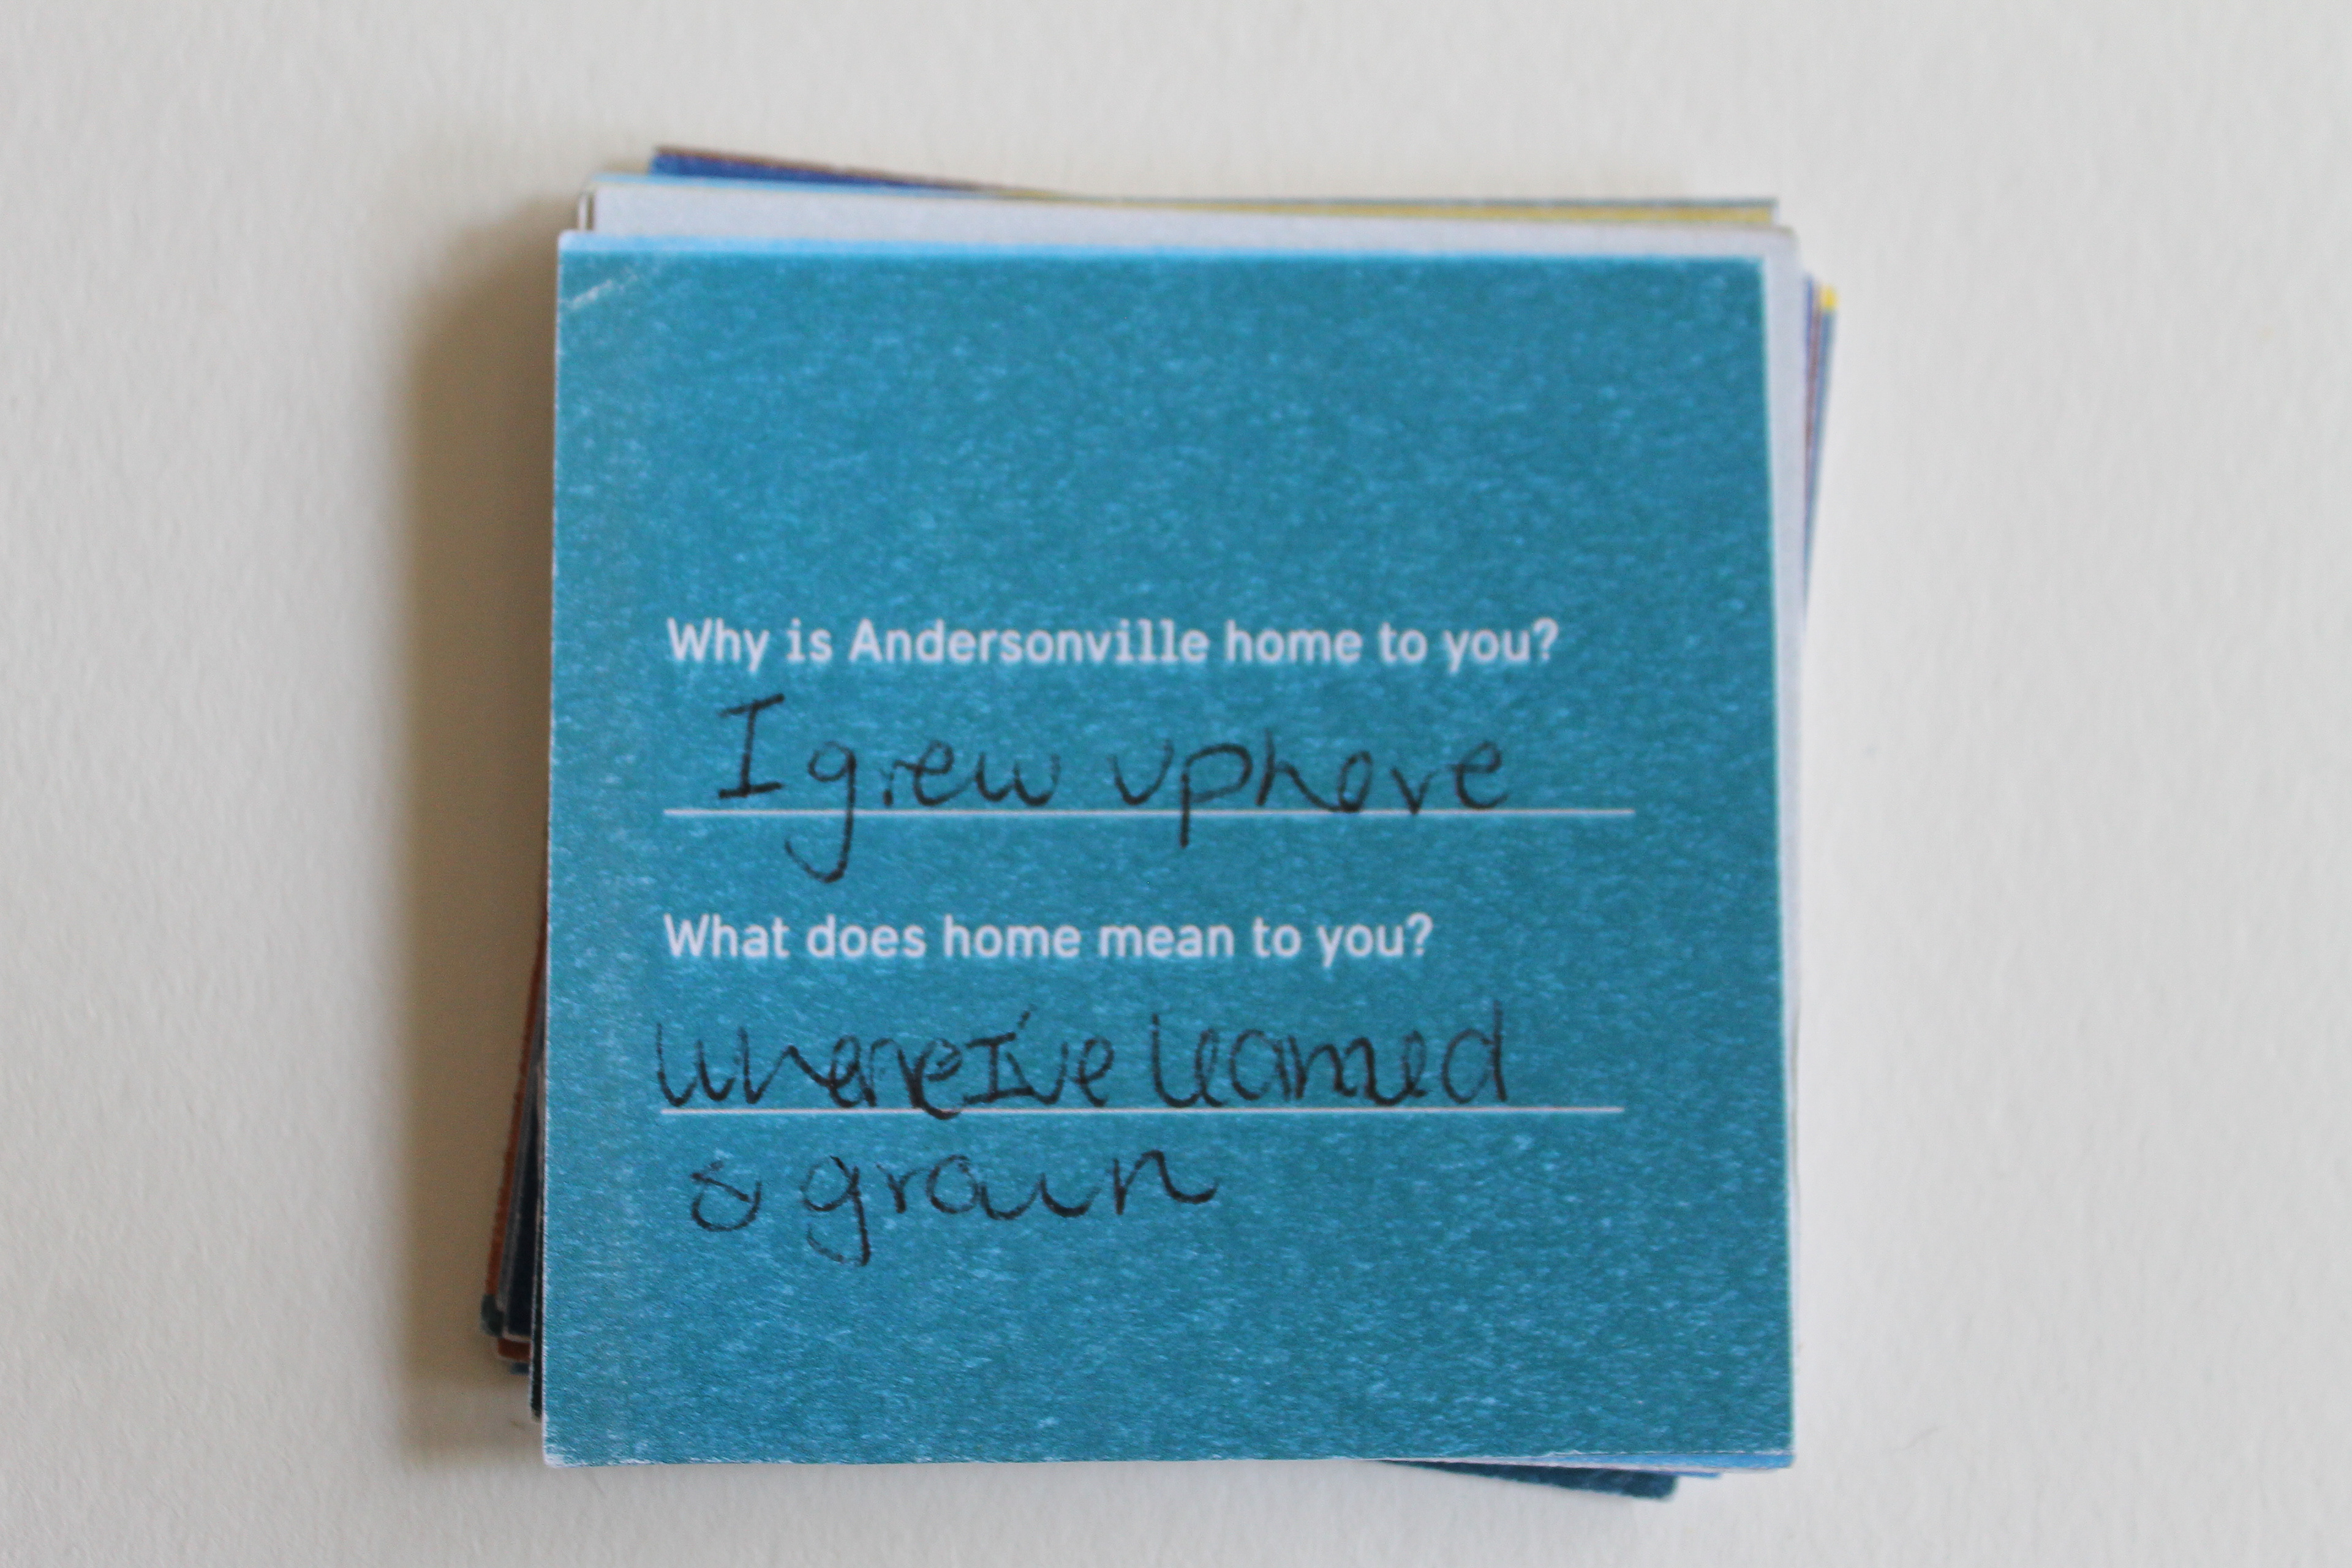 Why is Andersonville home to you?
I grew up here
What does home mean to you?
Where I've learned
& grown